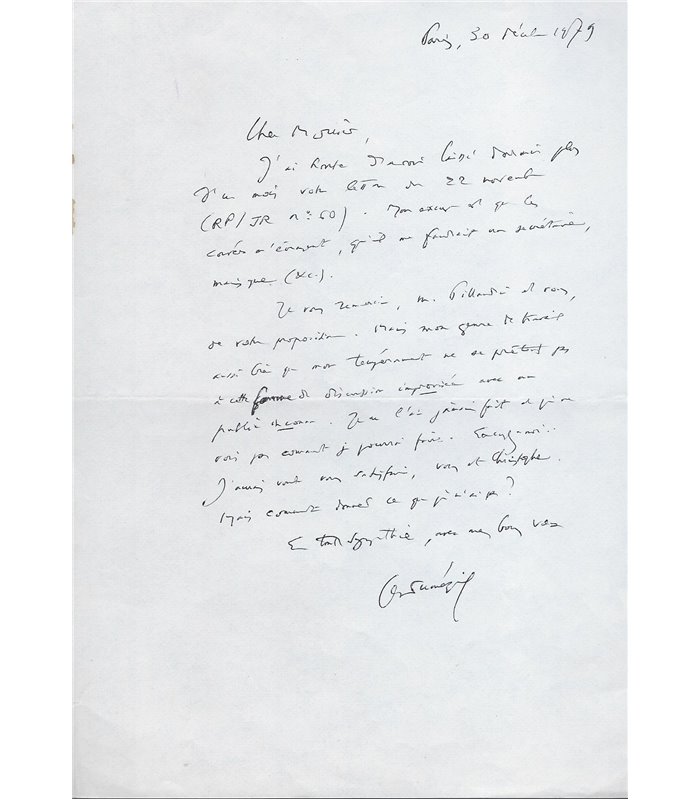 Paris, 30 déc. 1979
Cher Monsieur,
J'ai honte d'avoir laissé dormir plus
d'un mois votre lettre du 22 novembre
(RP/JR n° 50). Mon excuse est que les
corvées m'écrasent, qu'il me faudrait un secrétaire,
mais que (&c.).
Je vous remercie, M. et vous,
de votre proposition. Mais mon genre de travail
aussi bien que mon tempérament ne se prêtent pas
à cette forme de discussion improvisée avec un
public inconnu. Je ne l'ai jamais fait et je ne
vois pas comment je pourrai faire. Excusez-moi.
J'aurais voulu vous satisfaire, vous et Christophe.
Mais comment donner ce que je n'ai pas?
En toute sympathie, avec mes bons vœux